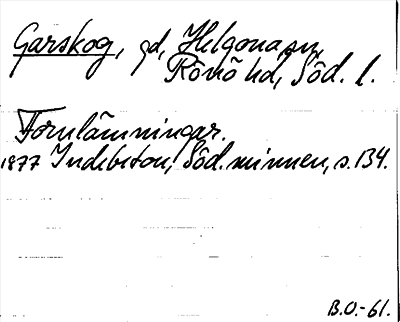 Garskog, gd, Helgona sn,
Rönö hd, Söd. l.
Fornlämningar.
1877 Indebetou, Söd. minnen, s. 134.
B.O.-61.